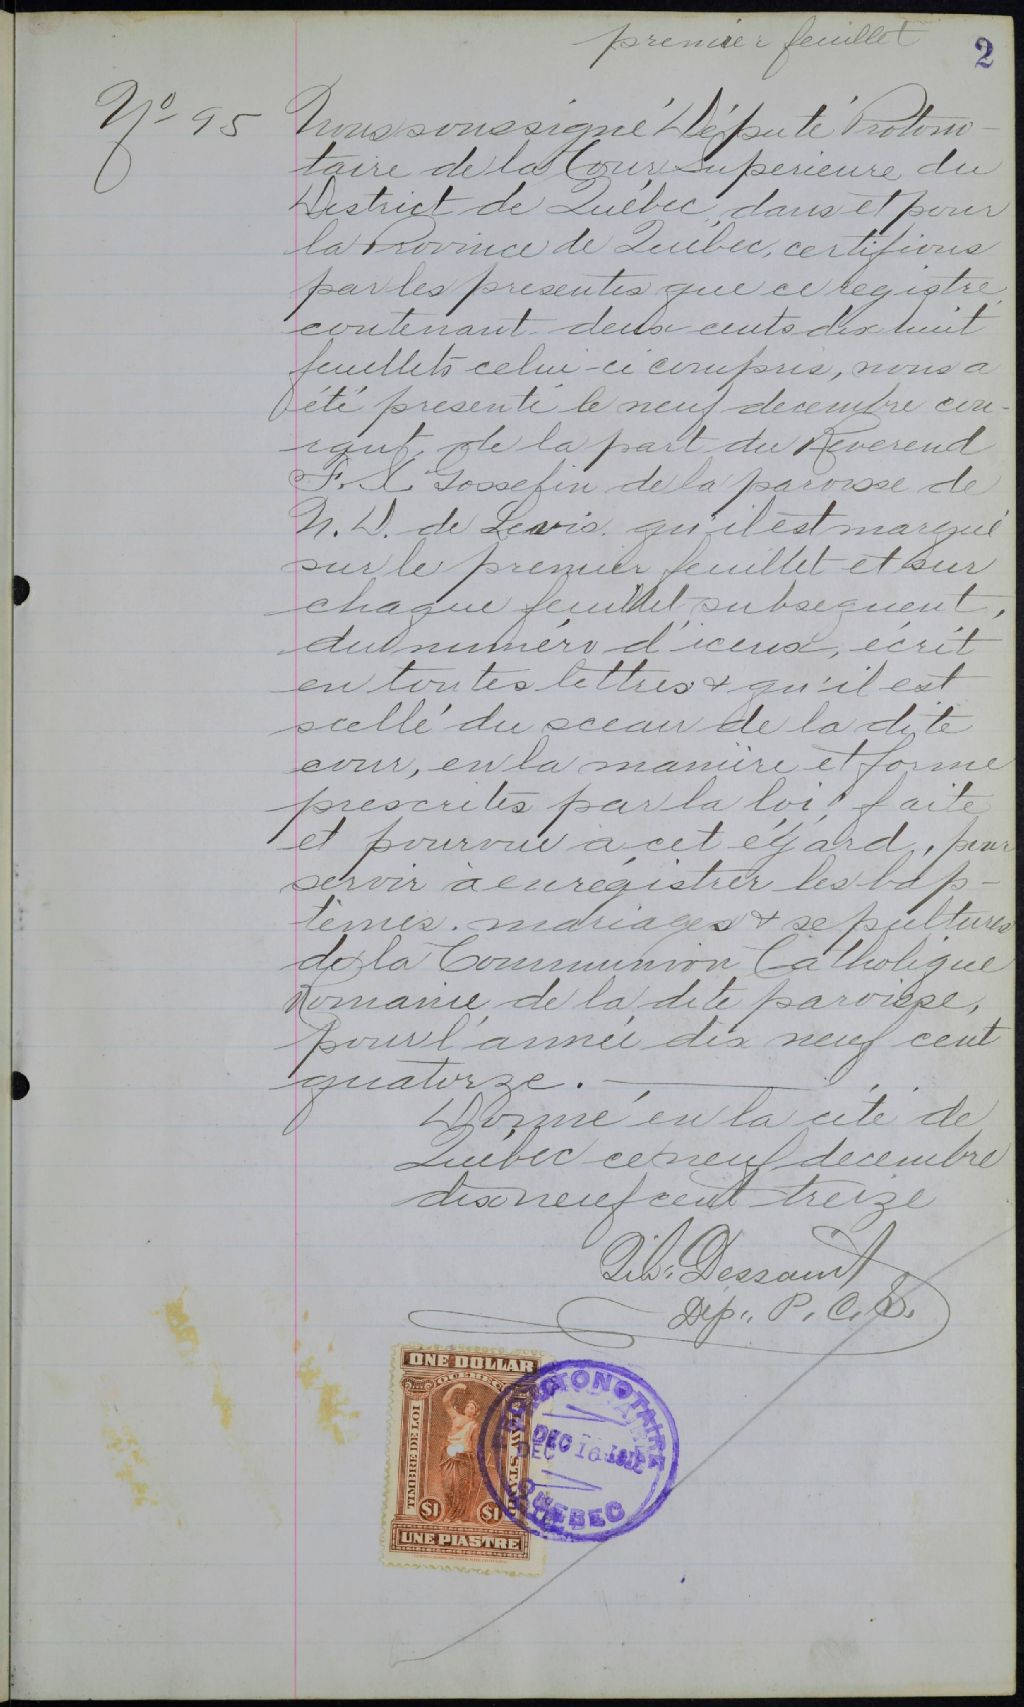 premier feuillet
2
No 95
Nous soussigné Député Protono-
taire de la Cour Superieure du
District de Québec, dans et pour
la Province de Québec, certifions
par les presentes que ce registre
contenant deux cents dix huit
feuillets celui-ci compris, nous a
été presenté le neuf decembre cou-
rant, de la part du Reverend
F. X. Gosselin de la paroisse de
N. D. de Levis. qu'il est marqué
sur le premier feuillet et sur
chaque feuillet subsequent,
du numéro d'iceux, écrit
en toutes lettres & qu'il est
scellé du sceau de la dite
cour, en la manière et forme
prescrites par la loi faite
et pourvue à cet égard, pour
servir à enrégistrer les bap-
têmes. mariages & sepultures
de la Communion Catholique
Romaine de la dite paroisse,
pour l'année dix neuf cent
quatorze.
Donné en la cité de
Québec ce neuf decembre
dix neuf cent treize
Dessaint
Dép. P. C. S.
ONE DOLLAR
QUEBEC
TIMBRE DE LOI
LAW STAMP
$1 $1
UNE PIASTRE
PROTONOTAIRE
DEC 16
QUEBEC